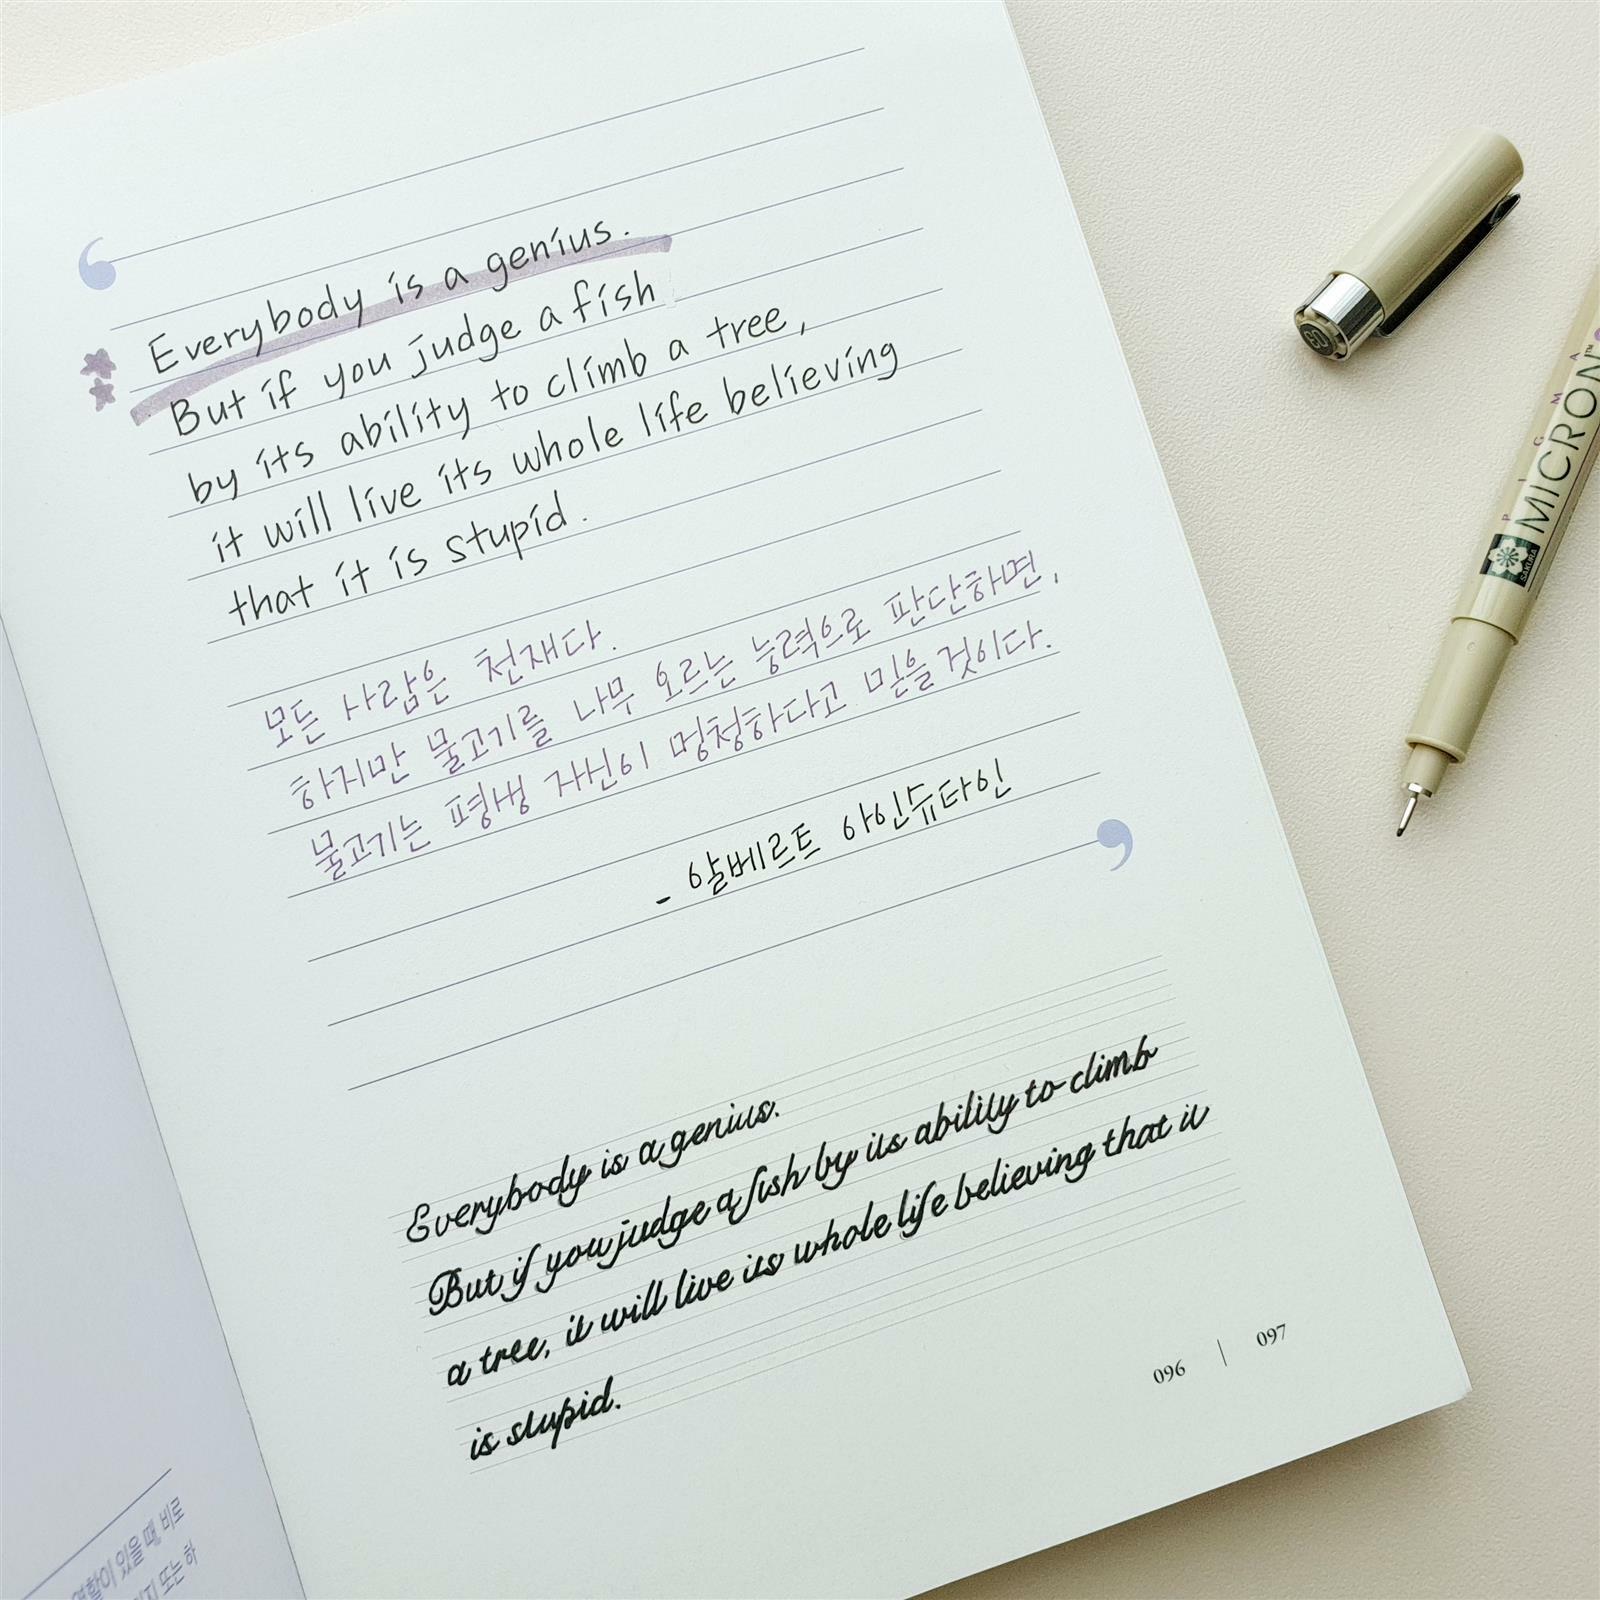 Everybody is a genius.
But if you judge a fish
by its ability to climb a tree,
it will live its whole life believing
that it is stupid.
모든 사람은 천재다.
하지만 물고기를 나무 오르는 능력으로 판단하면,
물고기는 평생 자신이 멍청하다고 믿을 것이다.
- 알베르트 아인슈타인
Everybody is a genius.
But if you judge a fish by its ability to climb
a tree, it will live its whole life believing that it
is stupid.
096 | 097
역할이 있을 때, 비로
지 또는 하
PIGMA
MICRON™
SAKURA